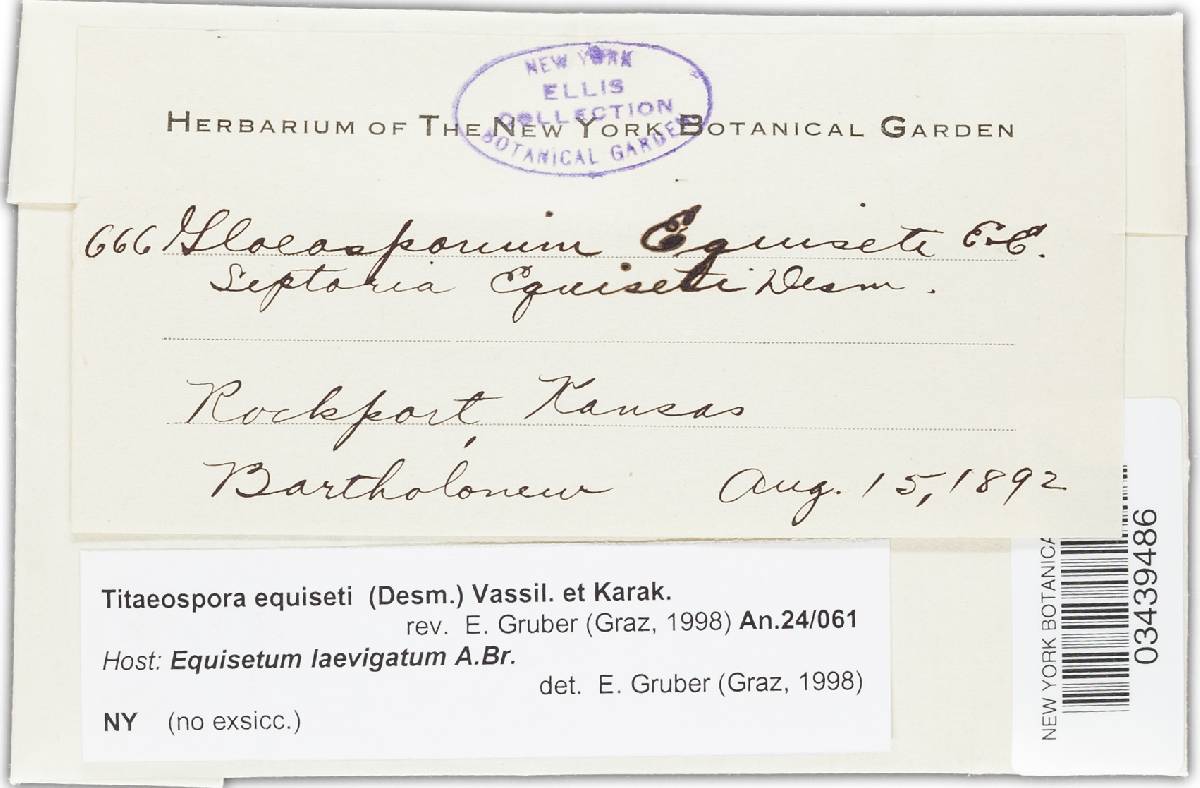 NEW YORK
ELLIS
COLLECTION
BOTANICAL GARDEN
HERBARIUM OF THE NEW YORK BOTANICAL GARDEN
666 Gloeosporium Equiseti E&E.
Septoria Equiseti Desm.
Rockport, Kansas
Bartholomew Aug. 15, 1892
Titaeospora equiseti (Desm.) Vassil. et Karak.
rev. E. Gruber (Graz, 1998) An.24/061
Host: Equisetum laevigatum A.Br.
det. E. Gruber (Graz, 1998)
NY (no exsicc.)
NEW YORK BOTANICA
03439486